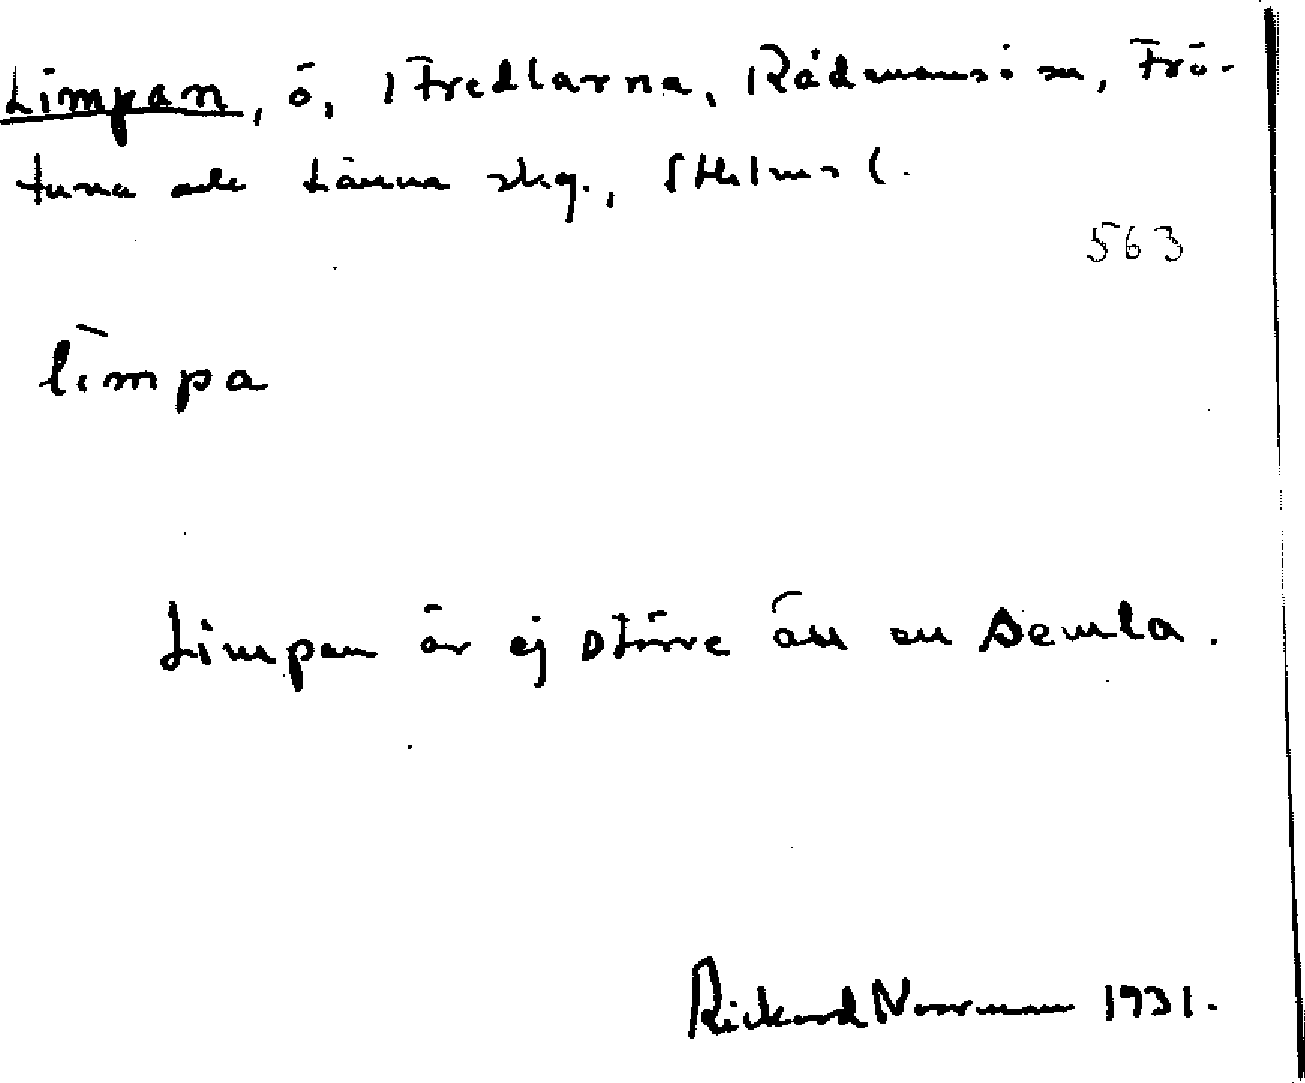 Limpan, ö, Fredlarna, Rådmansö sn, Frö-
tuna och Länna skg., Sthlms l.
563
limpa
Limpan är ej större än en semla.
Rickard Norrman 1931.